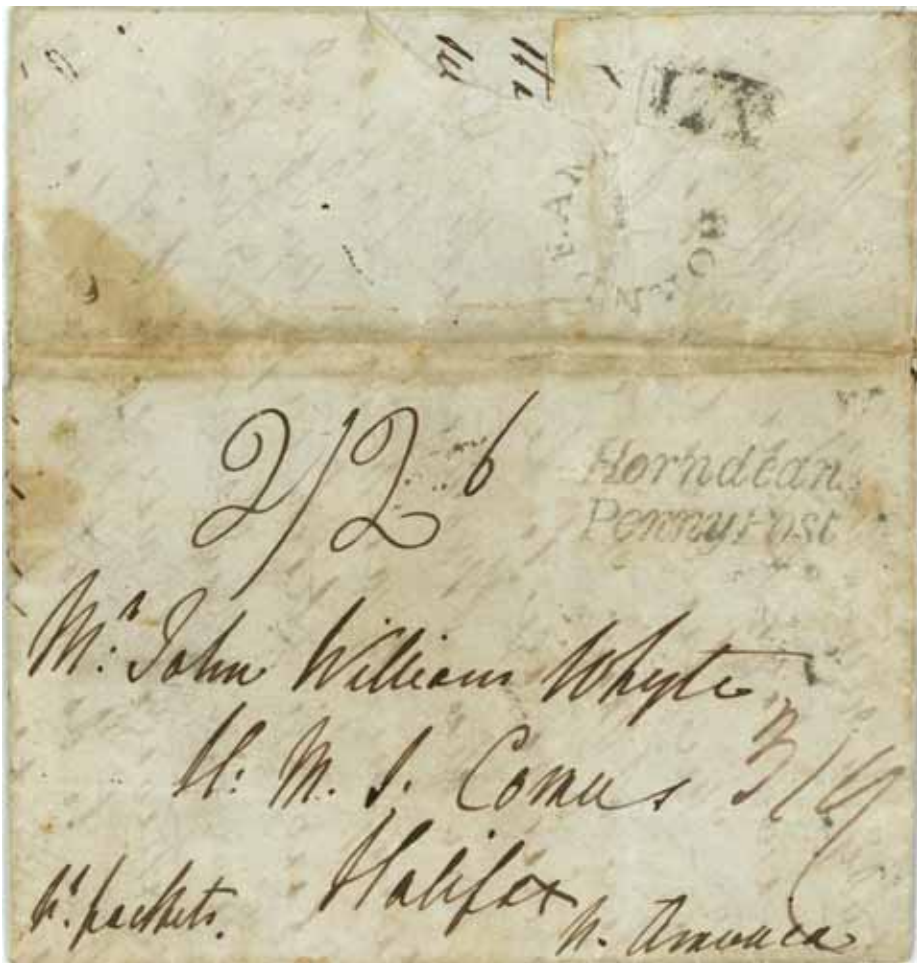 2/2
Horndean
Penny Post
Mr. John William Whyte
H. M. S. Comus
3/
Halifax
pr. packets.
N. America